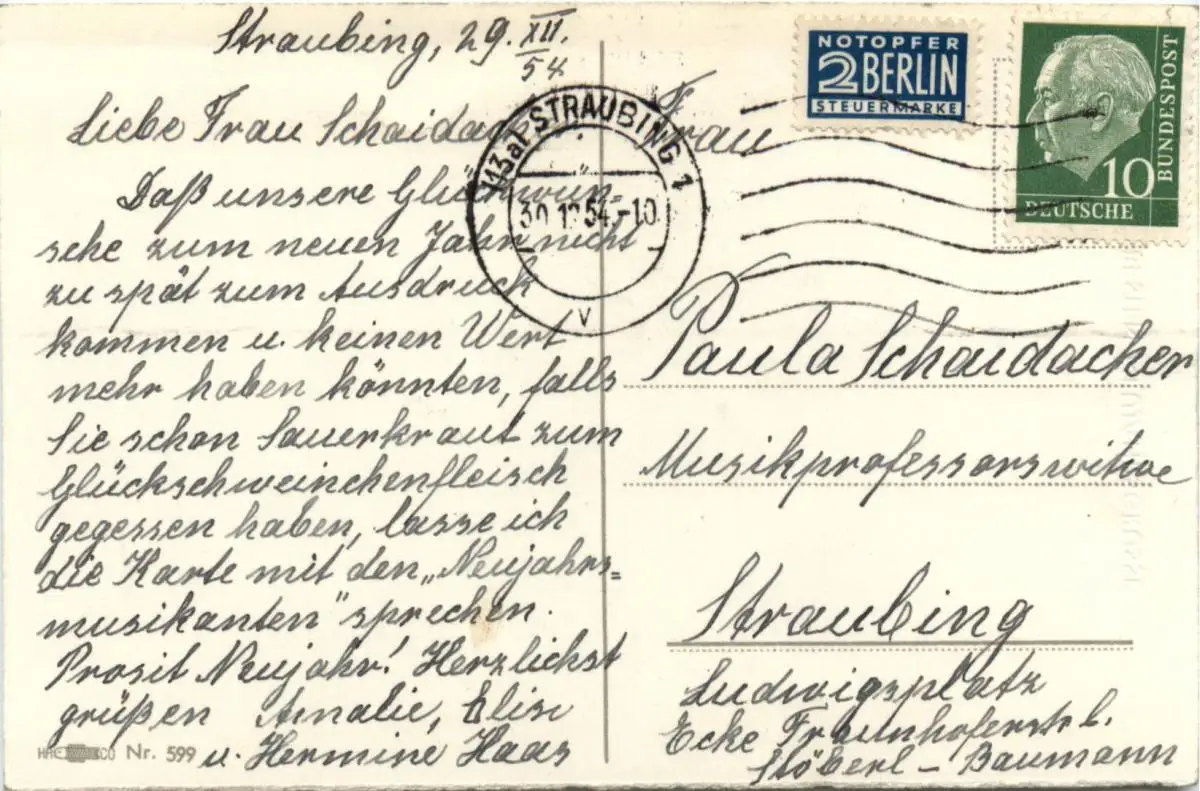 Straubing, 29. XII.
54
Liebe Frau Schaidac
Daß unsere Glückwün-
sche zum neuen Jahr nicht
zu spät zum Ausdruck
kommen u. keinen Wert
mehr haben könnten, falls
Sie schon Sauerkraut zum
Glückschweinchenfleisch
gegessen haben, lasse ich
die Karte mit den „Neujahrs=
musikanten" sprechen.
Prosit Neujahr! Herzlichst
grüßen Amalie, Elise
u. Hermine Haas
Nr. 599
(13a) STRAUBING 1
30.12.54.-10
V
NOTOPFER
2 BERLIN
STEUERMARKE
BUNDESPOST
10
DEUTSCHE
Frau
Paula Schaidacker
Musikprofessorswitwe
Straubing
Ludwigsplatz
Ecke Fraunhoferstr b.
Stöberl - Baumann